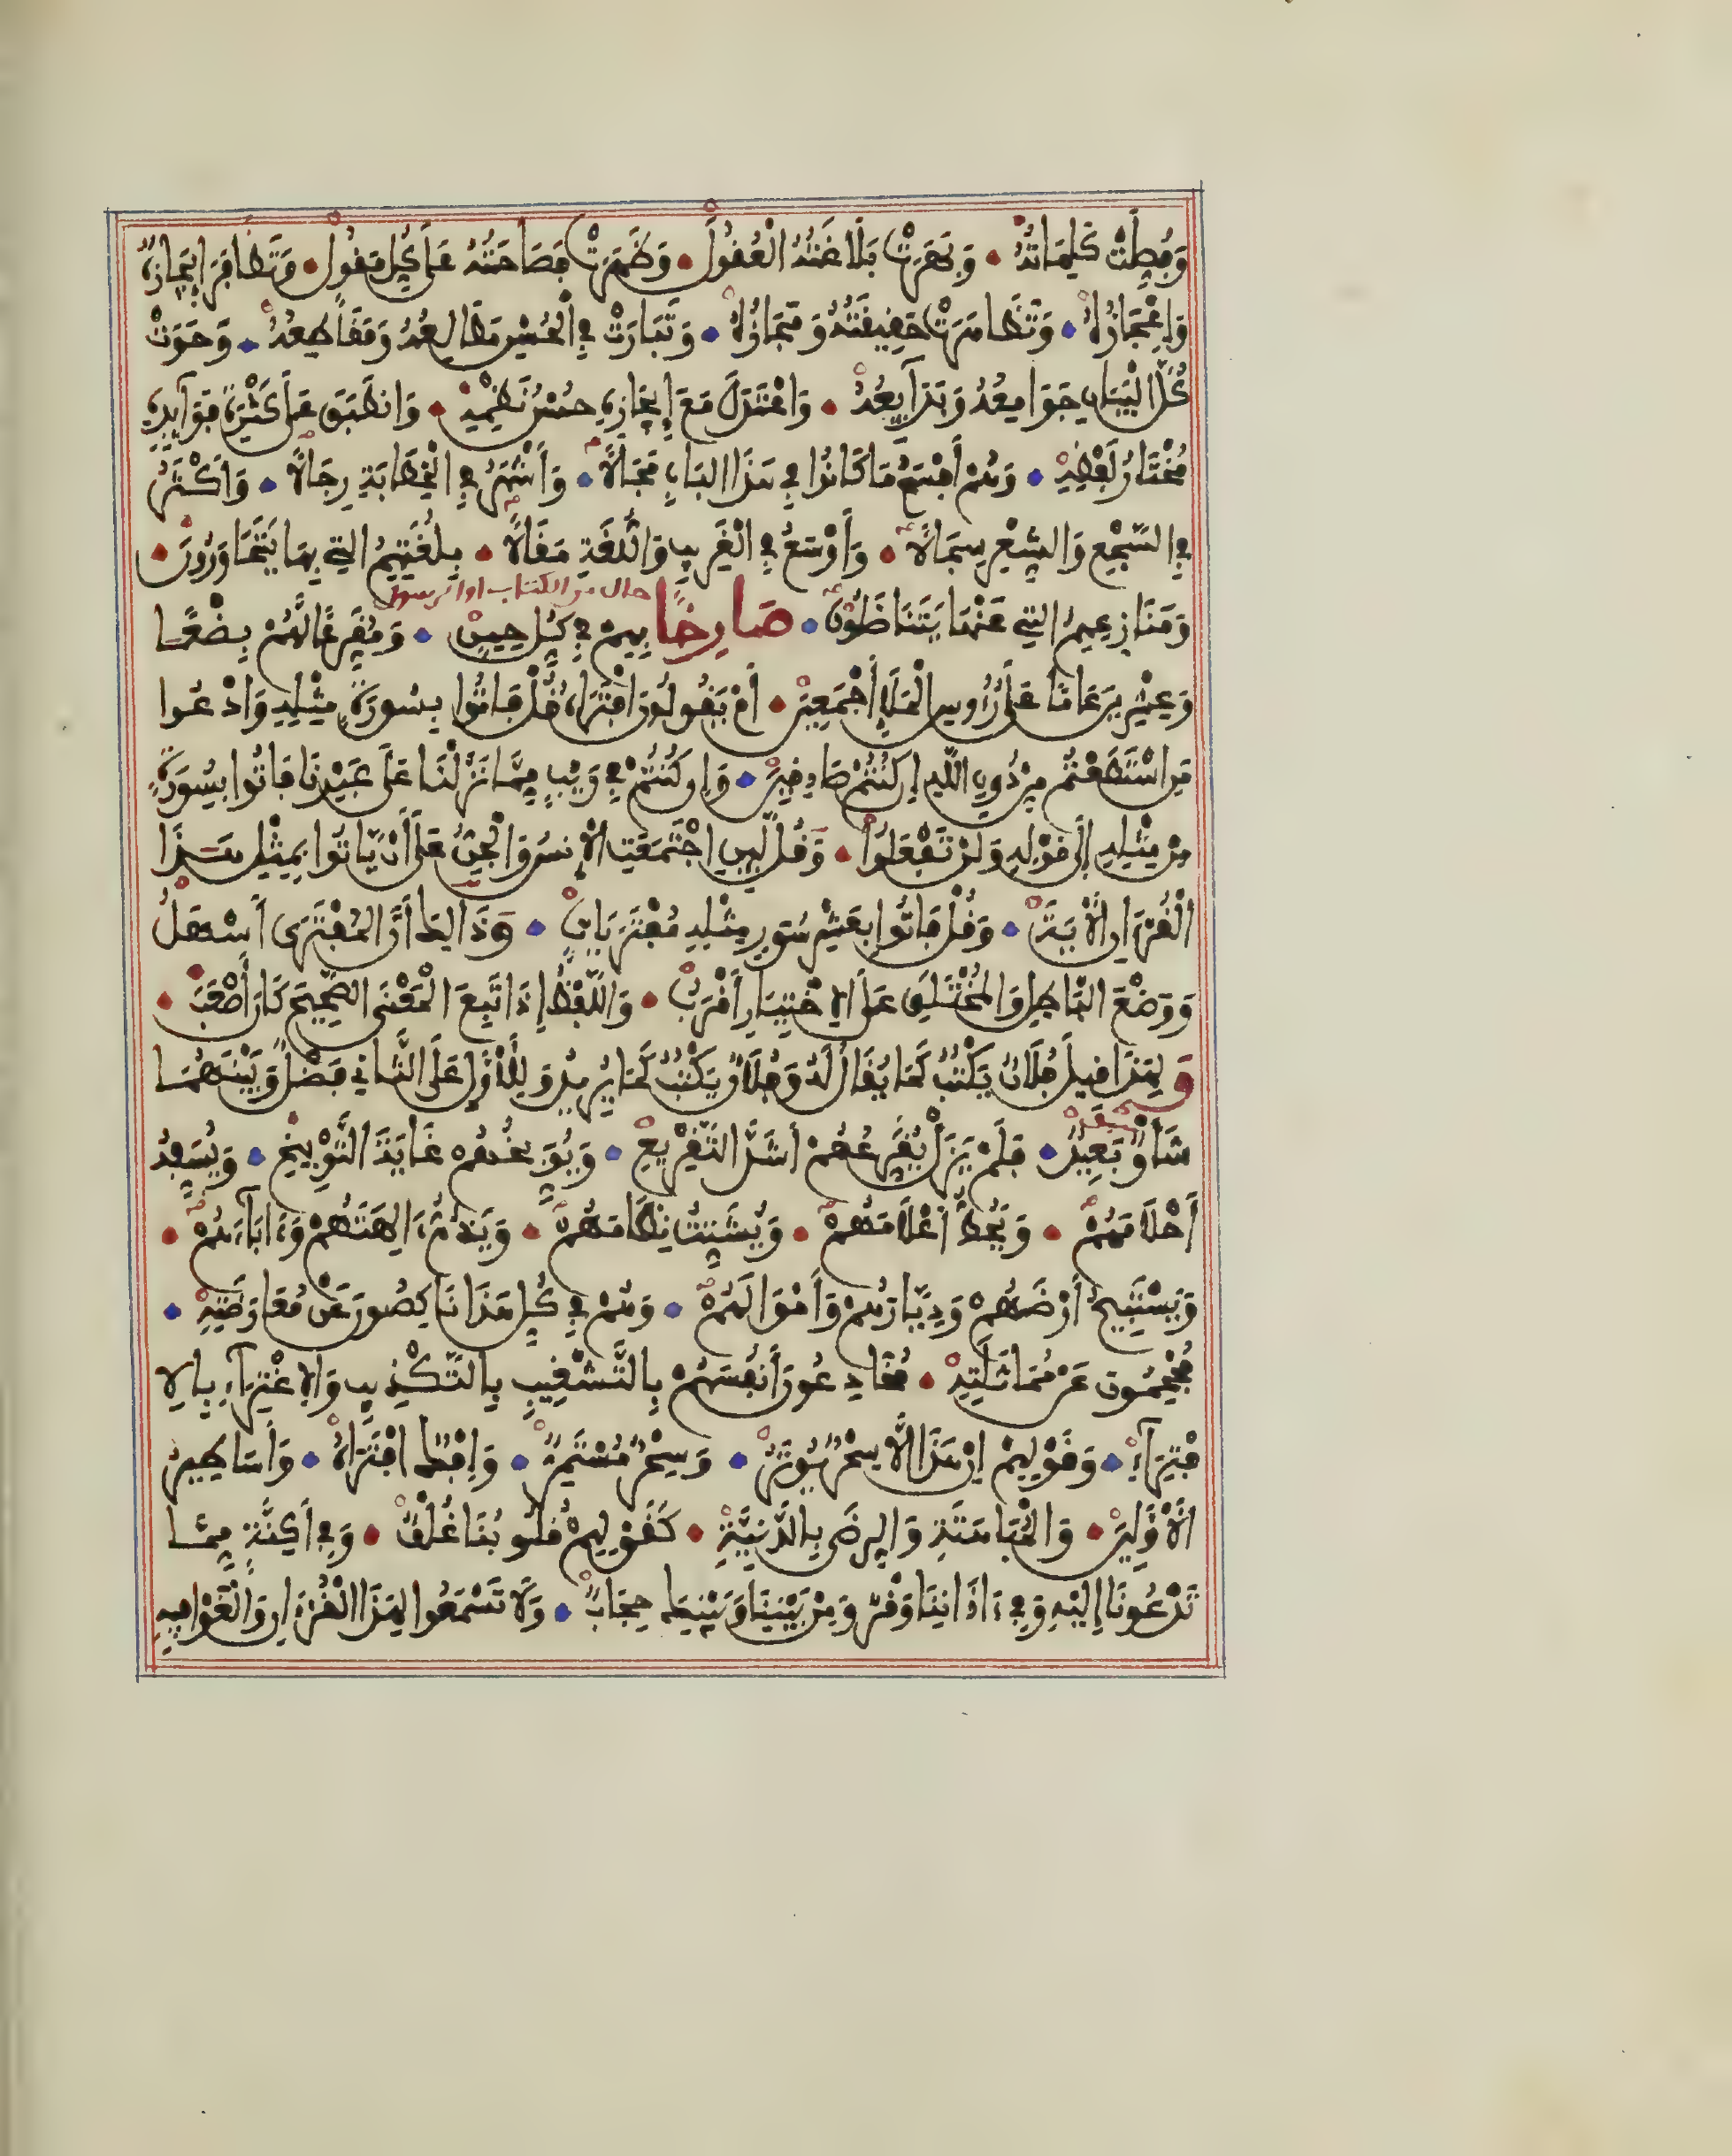 وَفُصِّلَتْ كَلِمَاتُهُ • وَبَهَرَتْ بَلَاغَتُهُ الْعُقُولَ • وَظَهَرَتْ فَصَاحَتُهُ عَلَى كُلِّ مَقُولٍ • وَتَظَافَرَ إِيجَازُهُ
وَإِعْجَازُهُ • وَتَظَاهَرَتْ حَقِيقَتُهُ وَمَجَازُهُ • وَتَبَارَتْ فِي الْحُسْنِ مَطَالِعُهُ وَمَقَاطِعُهُ • وَحَوَتْ
كُلَّ الْبَيَانِ جَوَامِعُهُ وَبَدَآيِعُهُ • وَاعْتَدَلَ مَعَ إِيجَازِهِ حُسْنُ نَظْمِهِ • وَانْطَبَقَ عَلَى كَثْرَةِ فَوَآيِدِهِ
مُخْتَارُ لَفْظِهِ • وَهُمْ أَفْسَحُ مَا كَانُوا فِي هَذَا الْبَابِ مَجَالًا • وَأَشْهَرُ فِي الْخَطَابَةِ رِجَالًا • وَأَكْثَرُ
فِي السَّجْعِ وَالشِّعْرِ سِجَالًا • وَأَوْسَعُ فِي الْغَرِيبِ وَاللُّغَةِ مَقَالًا • بِلُغَتِهِمُ الَّتِي بِهَا يَتَحَاوَرُونَ •
وَمَنَازِعِهِمُ الَّتِي عَنْهَا يَتَنَاضَلُونَ • صَارِخًا بِهِمْ فِي كُلِّ حِينٍ • وَمُقَرِّعًا لَهُمْ بِضْعًا
وَعِشْرِينَ عَامًا عَلَى رُءُوسِ الْمَلَإِ أَجْمَعِينَ • أَمْ يَقُولُونَ افْتَرَاهُ قُلْ فَاتُوا بِسُورَةٍ مِثْلِهِ وَادْعُوا
مَنِ اسْتَطَعْتُمْ مِنْ دُونِ اللَّهِ إِن كُنْتُمْ صَادِقِينَ • وَإِن كُنْتُمْ فِي رَيْبٍ مِمَّا نَزَّلْنَا عَلَى عَبْدِنَا فَاتُوا بِسُورَةٍ
مِنْ مِثْلِهِ إِلَى قَوْلِهِ وَلَنْ تَفْعَلُوا • وَقُل لَّئِنِ اجْتَمَعَتِ الْإِنسُ وَالْجِنُّ عَلَى أَنْ يَّاتُوا بِمِثْلِ هَذَا
الْقُرْءَانِ الْآيَةَ • وَقُلْ فَاتُوا بِعَشْرِ سُوَرٍ مِثْلِهِ مُفْتَرَيَاتٍ • وَذَالِكَ أَنَّ الْمُفْتَرَى أَسْهَلُ
وَوَضْعَ الْبَاطِلِ وَالْمُخْتَلَقِ عَلَى الِاخْتِيَارِ أَقْرَبُ • وَاللَّفْظُ إِذَا تَبِعَ الْمَعْنَى الصَّحِيحَ كَانَ أَصْعَبَ •
وَلِهَذَا قِيلَ فُلَانٌ يَكْتُبُ كَمَا يُقَالُ لَهُ وَفُلَانٌ يَكْتُبُ كَمَا يُرِيدُ وَلِلْأَوَّلِ عَلَى الثَّانِي فَضْلٌ وَبَيْنَهُمَا
شَأْوٌ بَعِيدٌ • فَلَمْ يَزَلْ يُقَرِّعُهُمْ أَشَدَّ التَّقْرِيعِ • وَيُوَبِّخُهُمْ غَايَةَ التَّوْبِيخِ • وَيُسَفِّهُ
أَحْلَامَهُمْ • وَيَحُطُّ أَعْلَامَهُمْ • وَيُشَتِّتُ نِظَامَهُمْ • وَيَذُمُّ ءَالِهَتَهُمْ وَءَابَاءَهُمْ •
وَيَسْتَبِيحُ أَرْضَهُمْ وَدِيَارَهُمْ وَأَمْوَالَهُمْ • وَهُمْ فِي كُلِّ هَذَا نَاكِصُونَ عَنْ مُعَارَضَتِهِ •
مُحْجِمُونَ عَنْ مُمَاثَلَتِهِ • مُخَادِعُونَ أَنفُسَهُمْ بِالتَّشْغِيبِ بِالتَّكْذِيبِ وَالِاغْتِرَآءِ بِالِا
فْتِرَآءِ • وَقَوْلِهِمْ إِنْ هَذَا إِلَّا سِحْرٌ يُوثَرُ • وَسِحْرٌ مُسْتَمِرٌّ • وَإِفْكٌ افْتَرَاهُ • وَأَسَاطِيرُ
الْأَوَّلِينَ • وَالْمُبَاهَتَةِ وَالرِّضَى بِالدَّنِيَّةِ • كَقَوْلِهِمْ قُلُوبُنَا غُلْفٌ • وَفِي أَكِنَّةٍ مِمَّا
تَدْعُونَا إِلَيْهِ وَفِي ءَاذَانِنَا وَقْرٌ وَمِنْ بَيْنِنَا وَبَيْنِكَ حِجَابٌ • وَلَا تَسْمَعُوا لِهَذَا الْقُرْءَانِ وَالْغَوْا فِيهِ